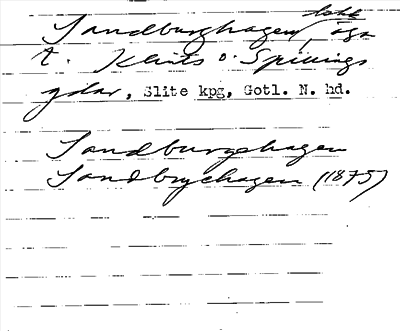 Sandburghagen, ägor
t. Klints o. Spillings
gdar, Slite kpg, Gotl. N. hd.
Sandburgehagen
Sandbyehagen (1875)